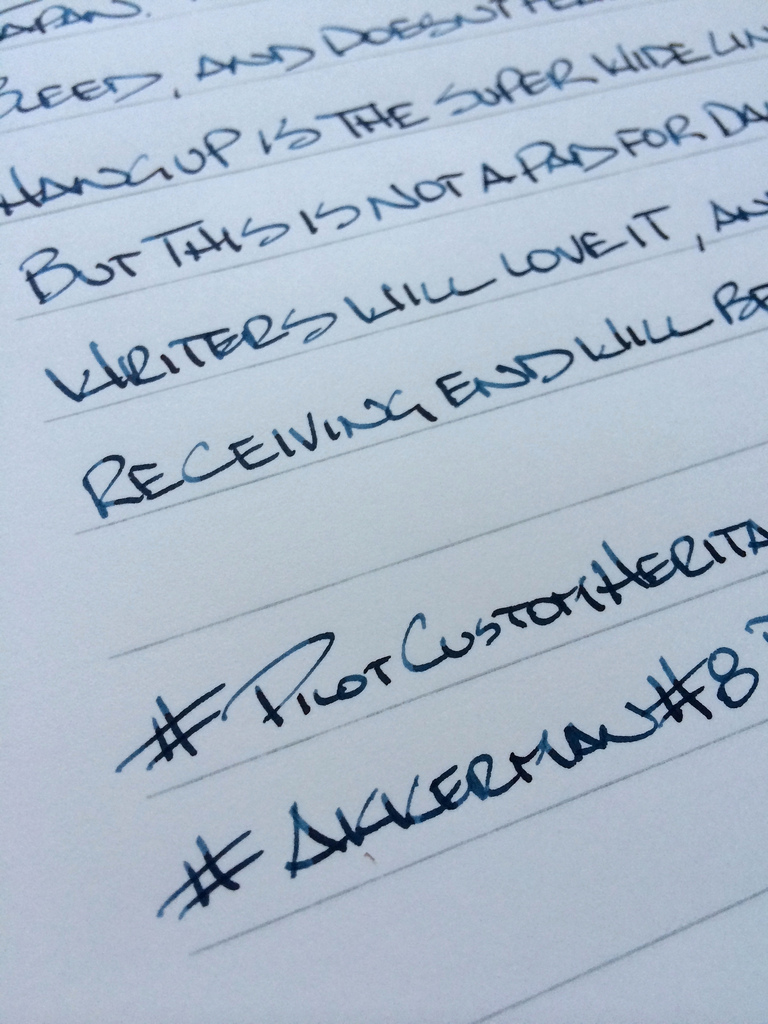 JAPAN.
BLEED, AND DOESN'T
HANGUP IS THE SUPER WIDE LIN
BUT THIS IS NOT A PAD FOR DA
WRITERS WILL LOVE IT, AN
RECEIVING END WILL BE
#PILOTCUSTOMHERITA
#AKKERMAN#8